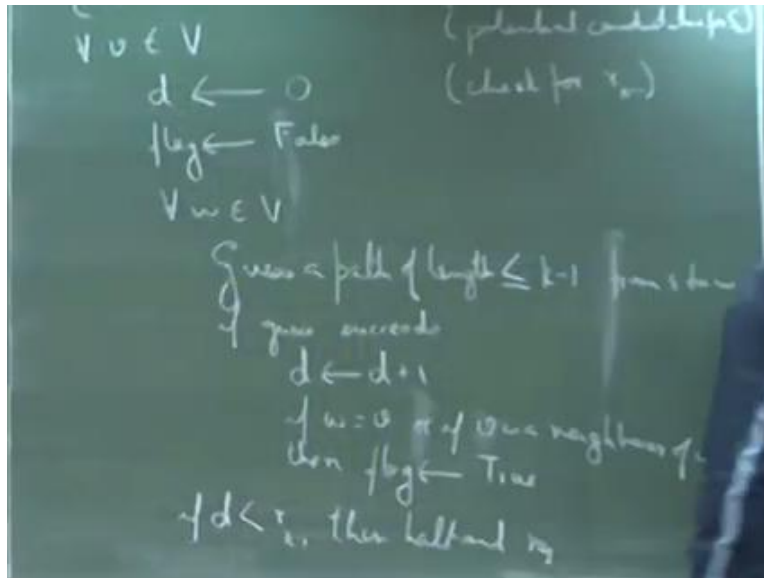 ∀ v ∈ V
(potential
d ← 0
(check for r
flag ← False
∀ w ∈ V
Guess a path of length ≤ k-1 from s to w
if guess succeeds
d ← d+1
if w = v or if v is a neighbour of
then flag ← True
if d < r then halt and rej